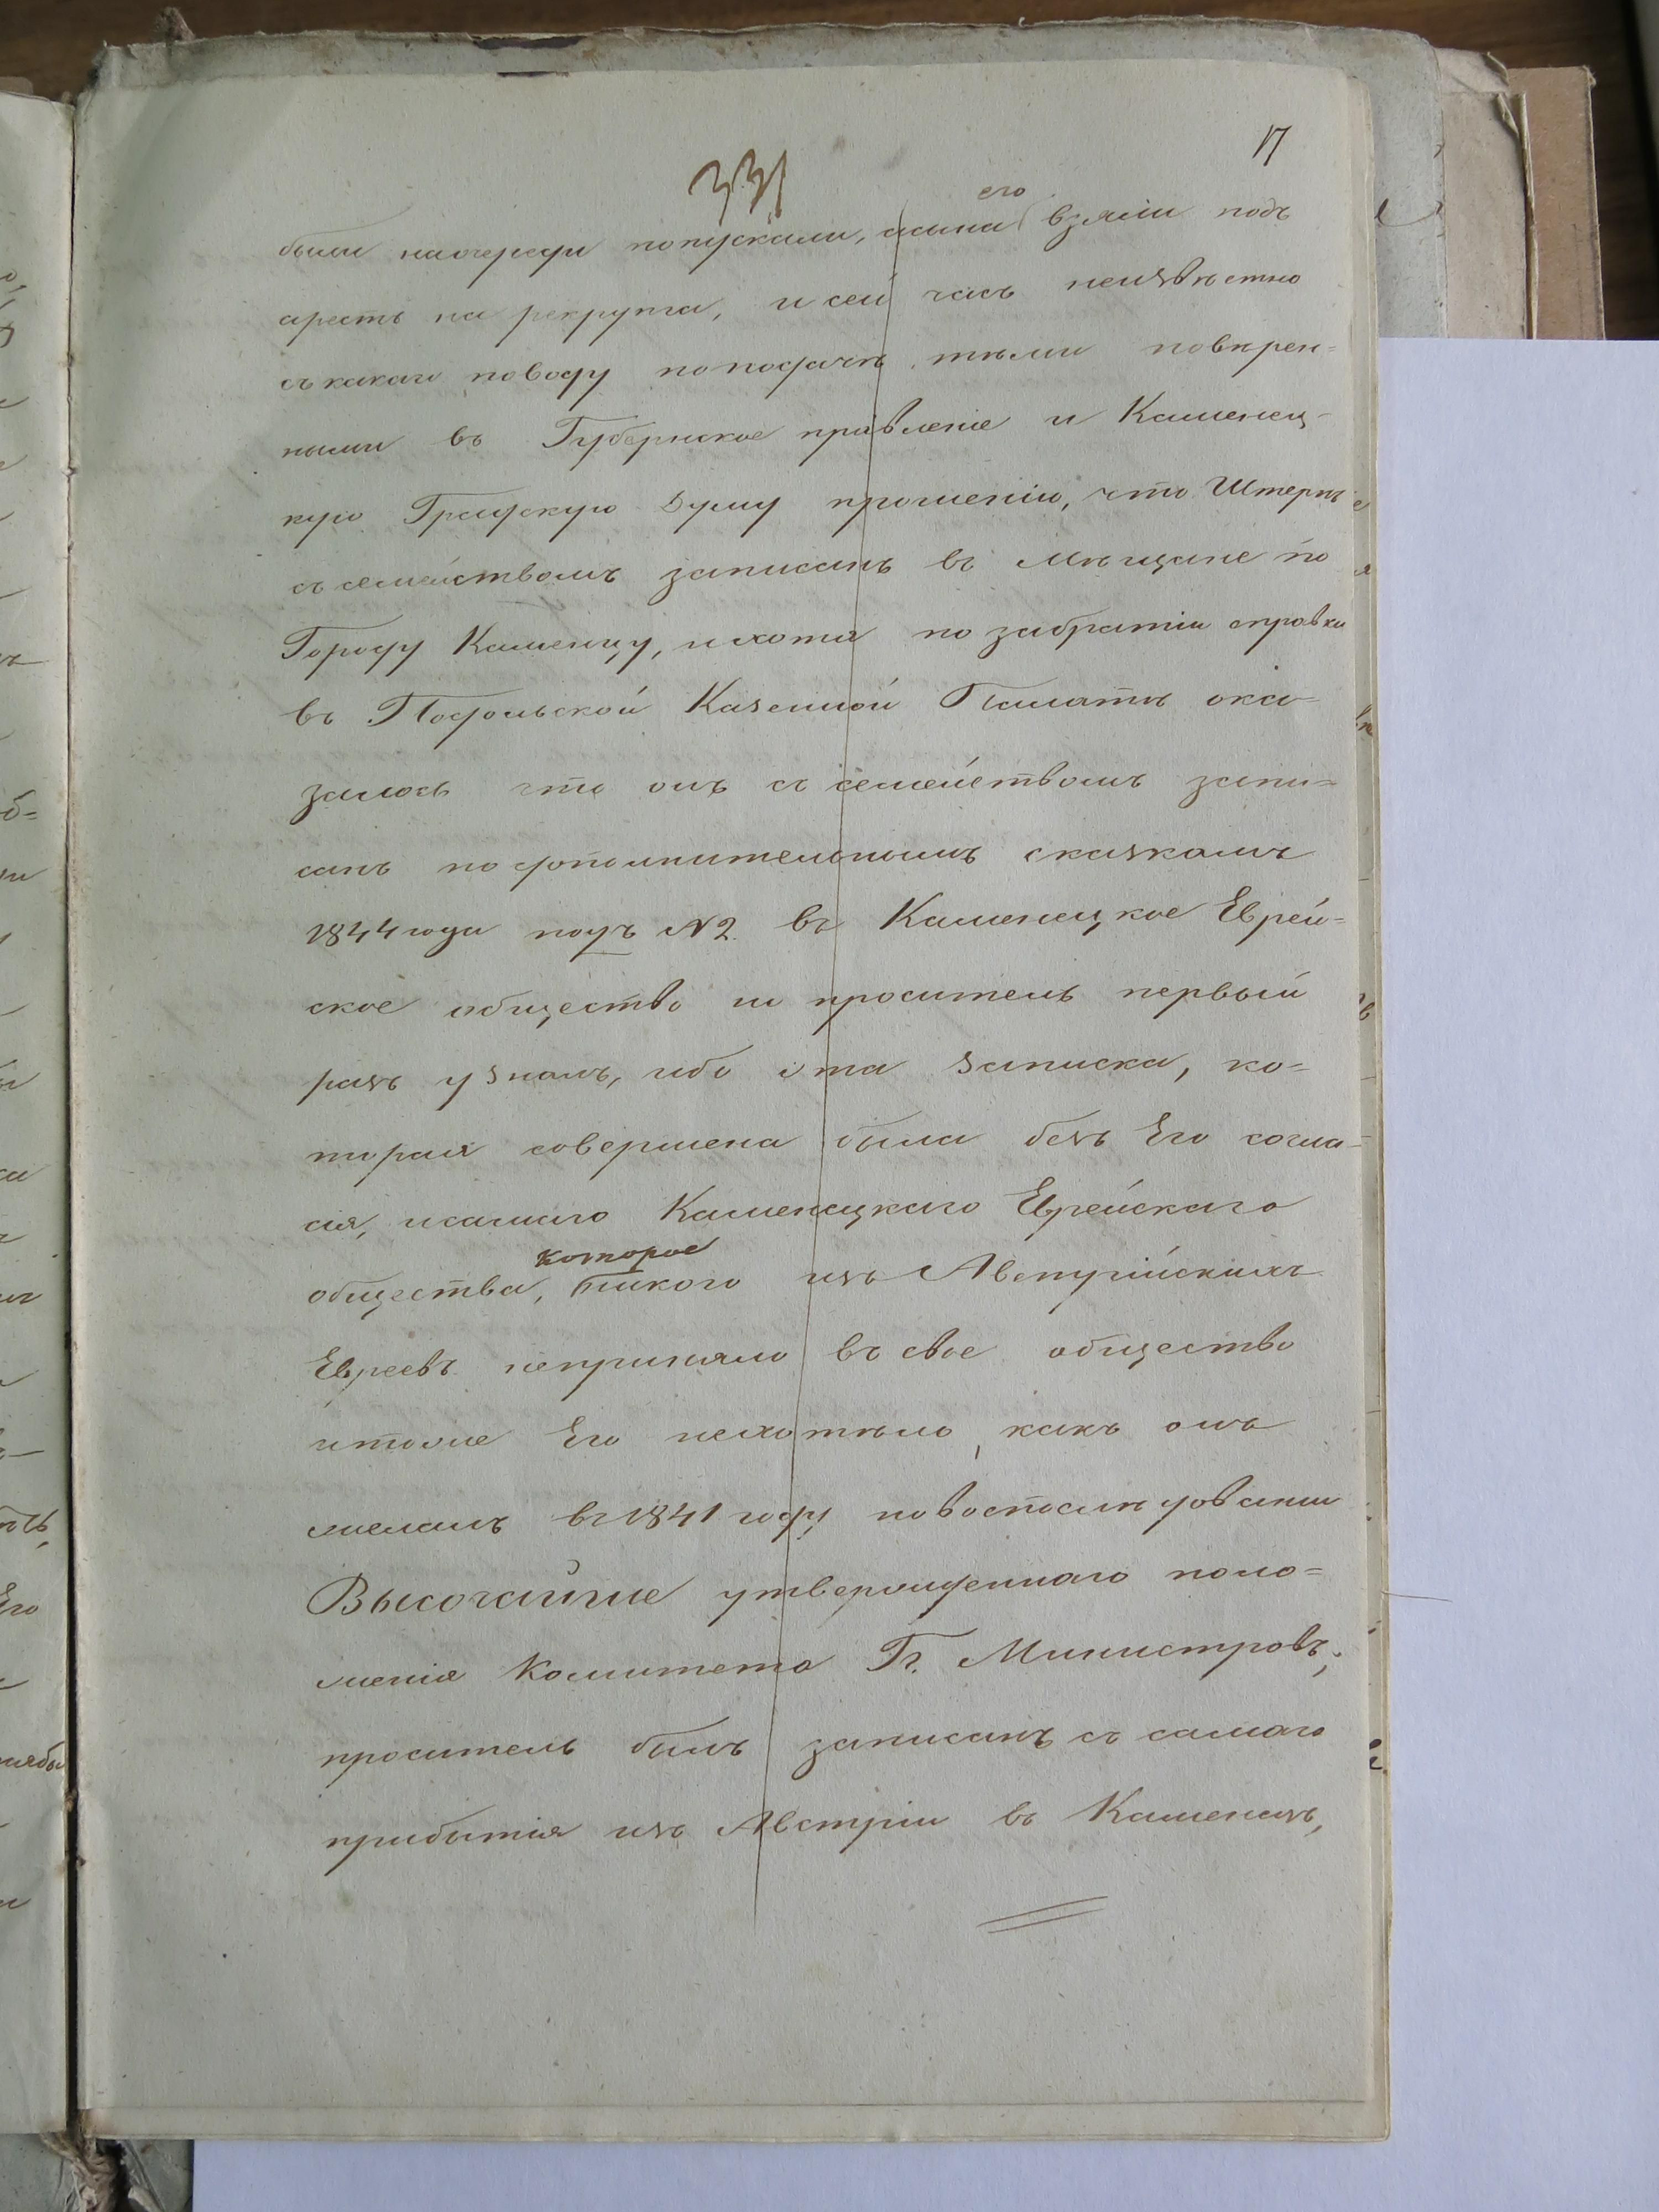 17
331
были наочереди попускали, асына его взяли подъ
арестъ на рекрута, и сей часъ неизвѣстно
съ какаго поводу поподачѣ тѣми повѣрен=
ными въ Губернское правленіе и Каменец-
кую Градскую Думу прошенію, что Штернъ
съ семействомъ записанъ въ Мѣщане по
Городу Каменцу, ихотя по забратіи справки
въ Подольской Казенной Палатѣ ока-
залось что онъ съ семействомъ запи=
санъ по дополнительнымъ сказкамъ
1844 года подъ N 2. въ Каменецкое Еврей=
ское общество но проситель первый
разъ узналъ, ибо эта записка, ко=
торая совершена была безъ Его согла-
сія, исамаго Каменецкаго Еврейскаго
общества, которое никого изъ Австрійскихъ
Евреевъ неприняло въ свое общество
итоже Его нехотѣло, какъ онъ
желалъ въ 1841 году повоспослѣдованіи
Высочайше утвержденнаго поло=
женія Комитета Гг. Министровъ,
проситель былъ записанъ съ самаго
прибытія изъ Австріи въ Каменецъ,